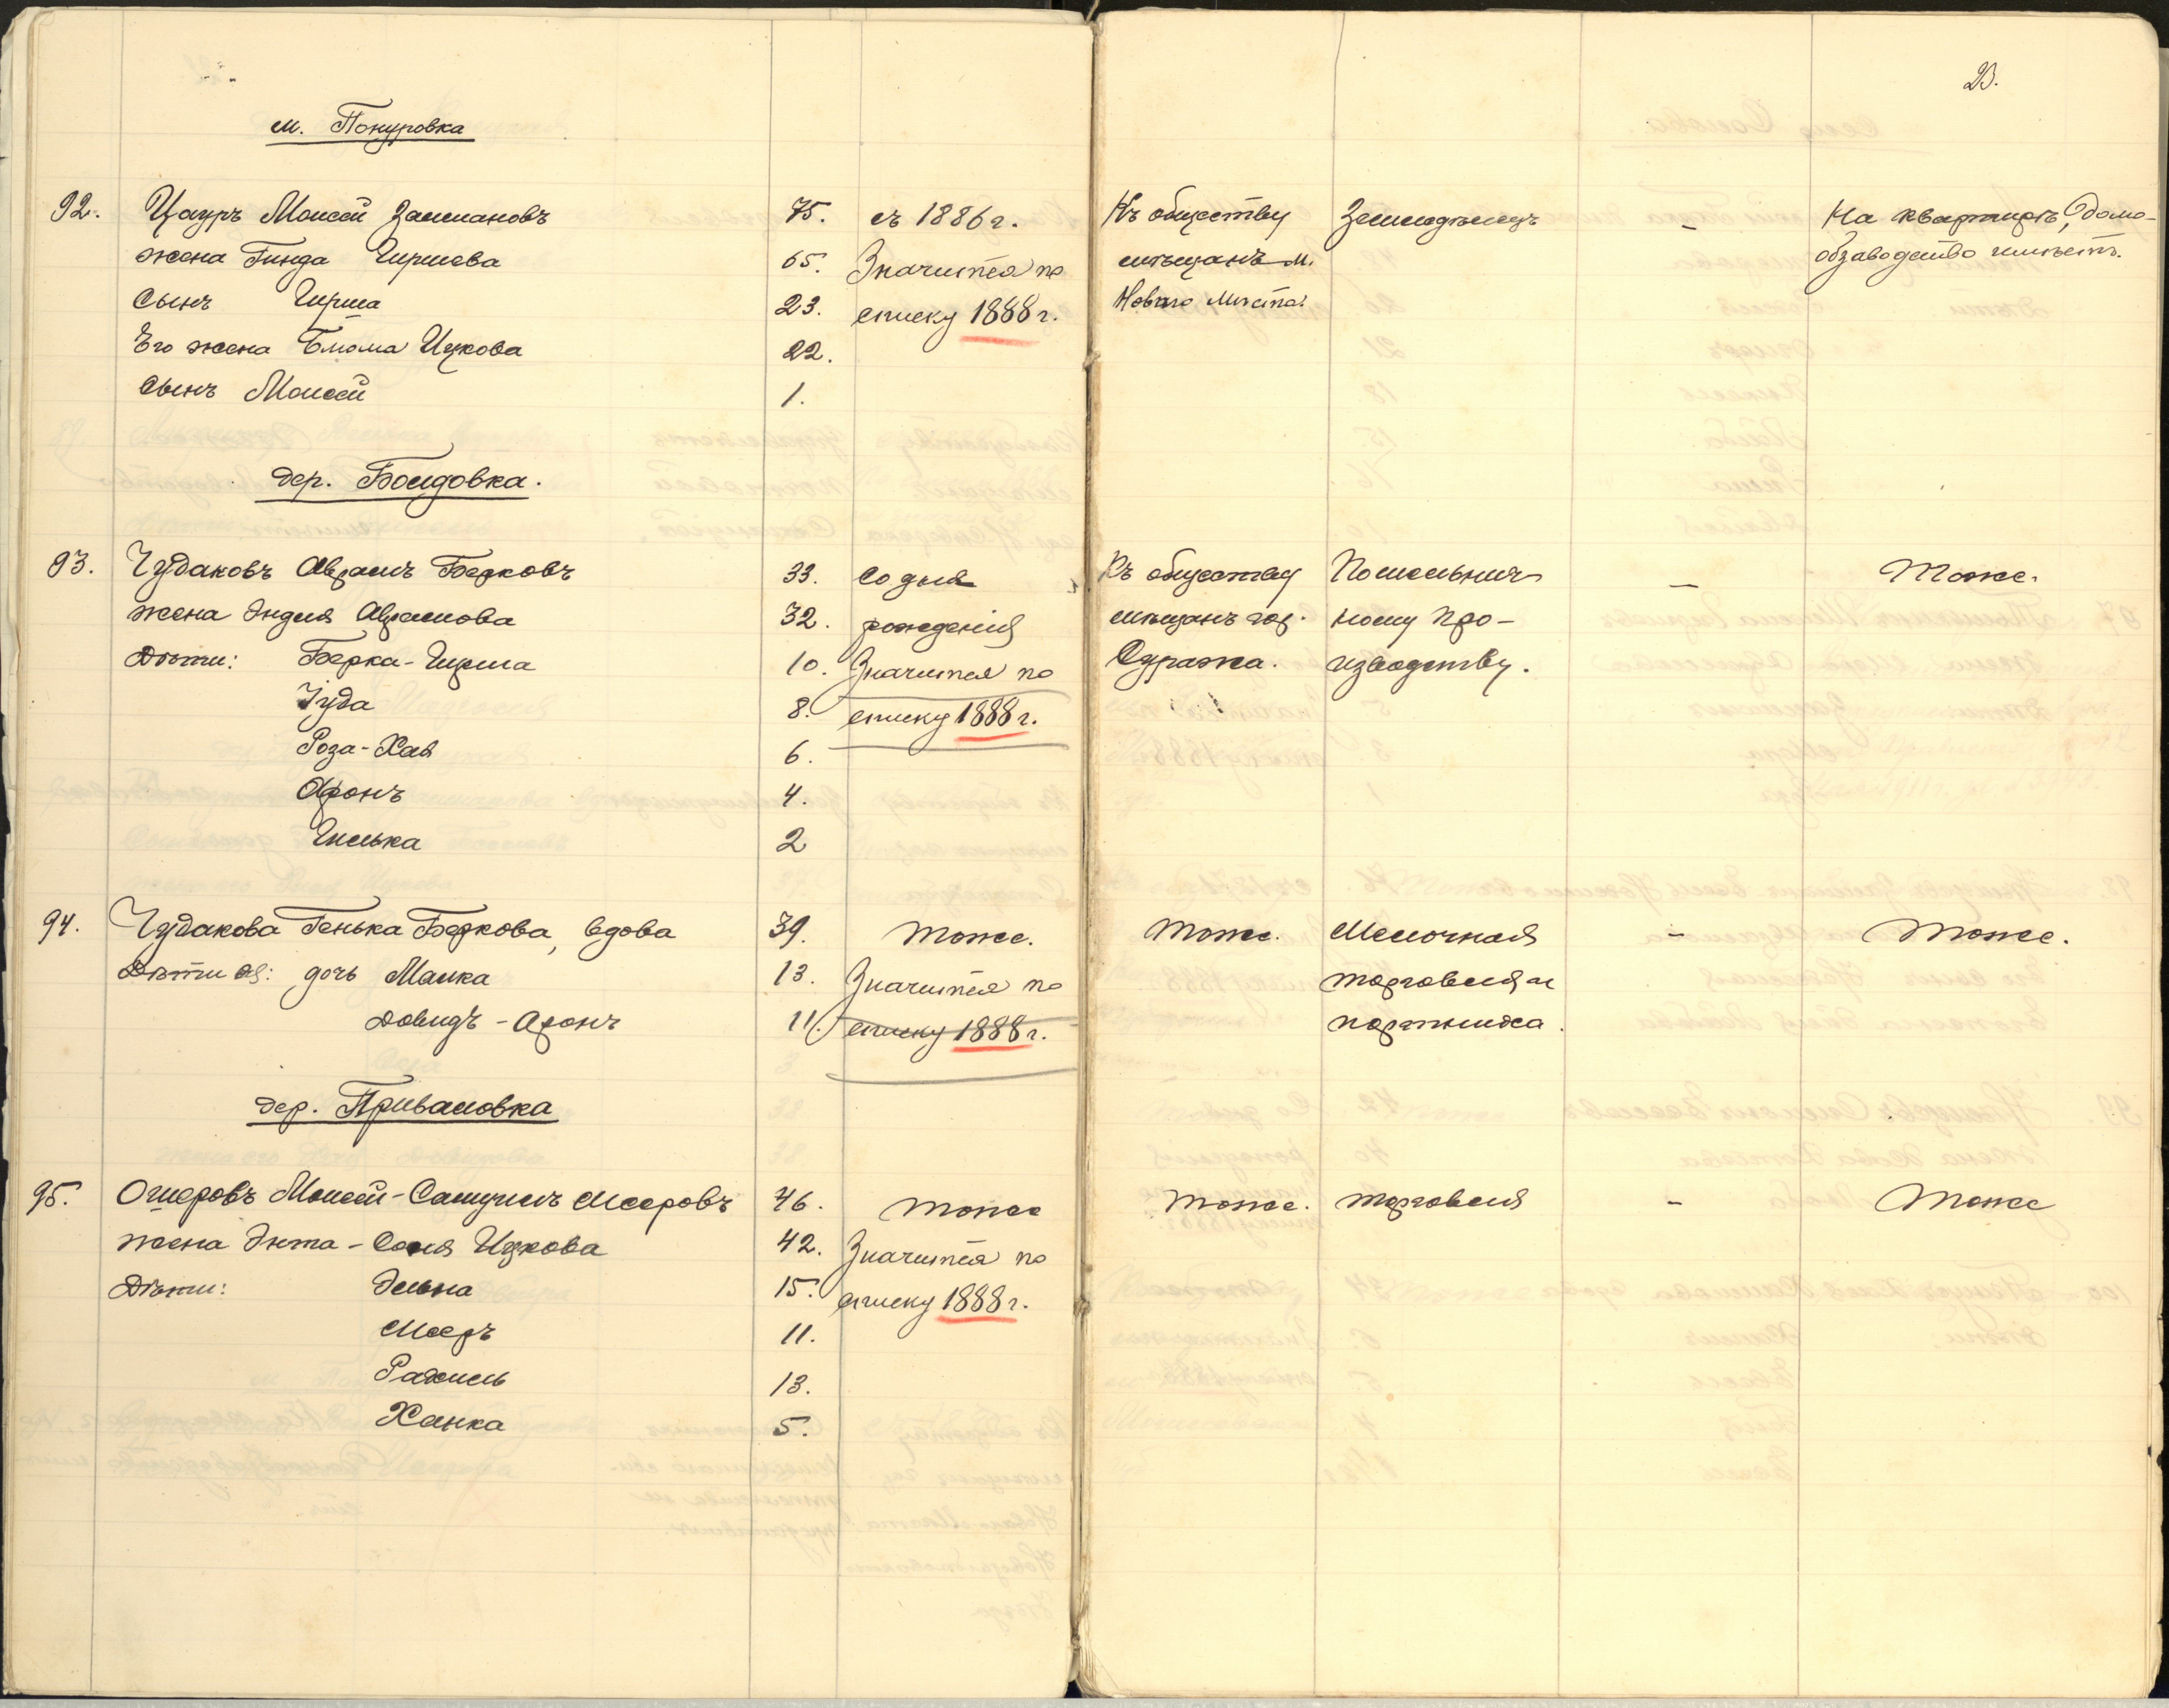 23.
м. Понуровка
92. Цауръ Моисей Залмановъ 75. съ 1886 г. Къ обществу Земледѣлецъ - На квартирѣ, домо-
жена Гинда Гиршева 65. Значится по мѣщанъ м. обзаводство имѣетъ.
Сынъ Гирша 23. списку 1888 г. Новаго Мѣста.
Его жена Блюма Ицкова 22.
Сынъ Моисей 1.
дер. Болдовка.
93. Чудаковъ Абрамъ Берковъ 33. Со дня Къ обществу По мельнич- - Тоже.
жена Эндля Абрамова 32. рожденія мѣщанъ гор. ному про-
Дѣти: Берка-Гирша 10. Значится по Суража. изводству.
Іуда 8. списку 1888 г.
Роза-Хая 6.
Аронъ 4.
Гилька 2
94. Чудакова Генька Беркова, вдова 39. Тоже. Тоже. Мелочная - Тоже.
Дѣти ея: дочь Малка 13. Значится по торговля и
Довидъ-Аронъ 11. списку 1888 г. портниха.
дер. Приваловка
95. Ошеровъ Моисей-Самуилъ Мееровъ 46. Тоже Тоже. Торговля - Тоже
жена Энта-Соня Ицкова 42. Значится по
Дѣти: Эльна 15. списку 1888 г.
Мееръ 11.
Рахиль 13.
Ханка 5.